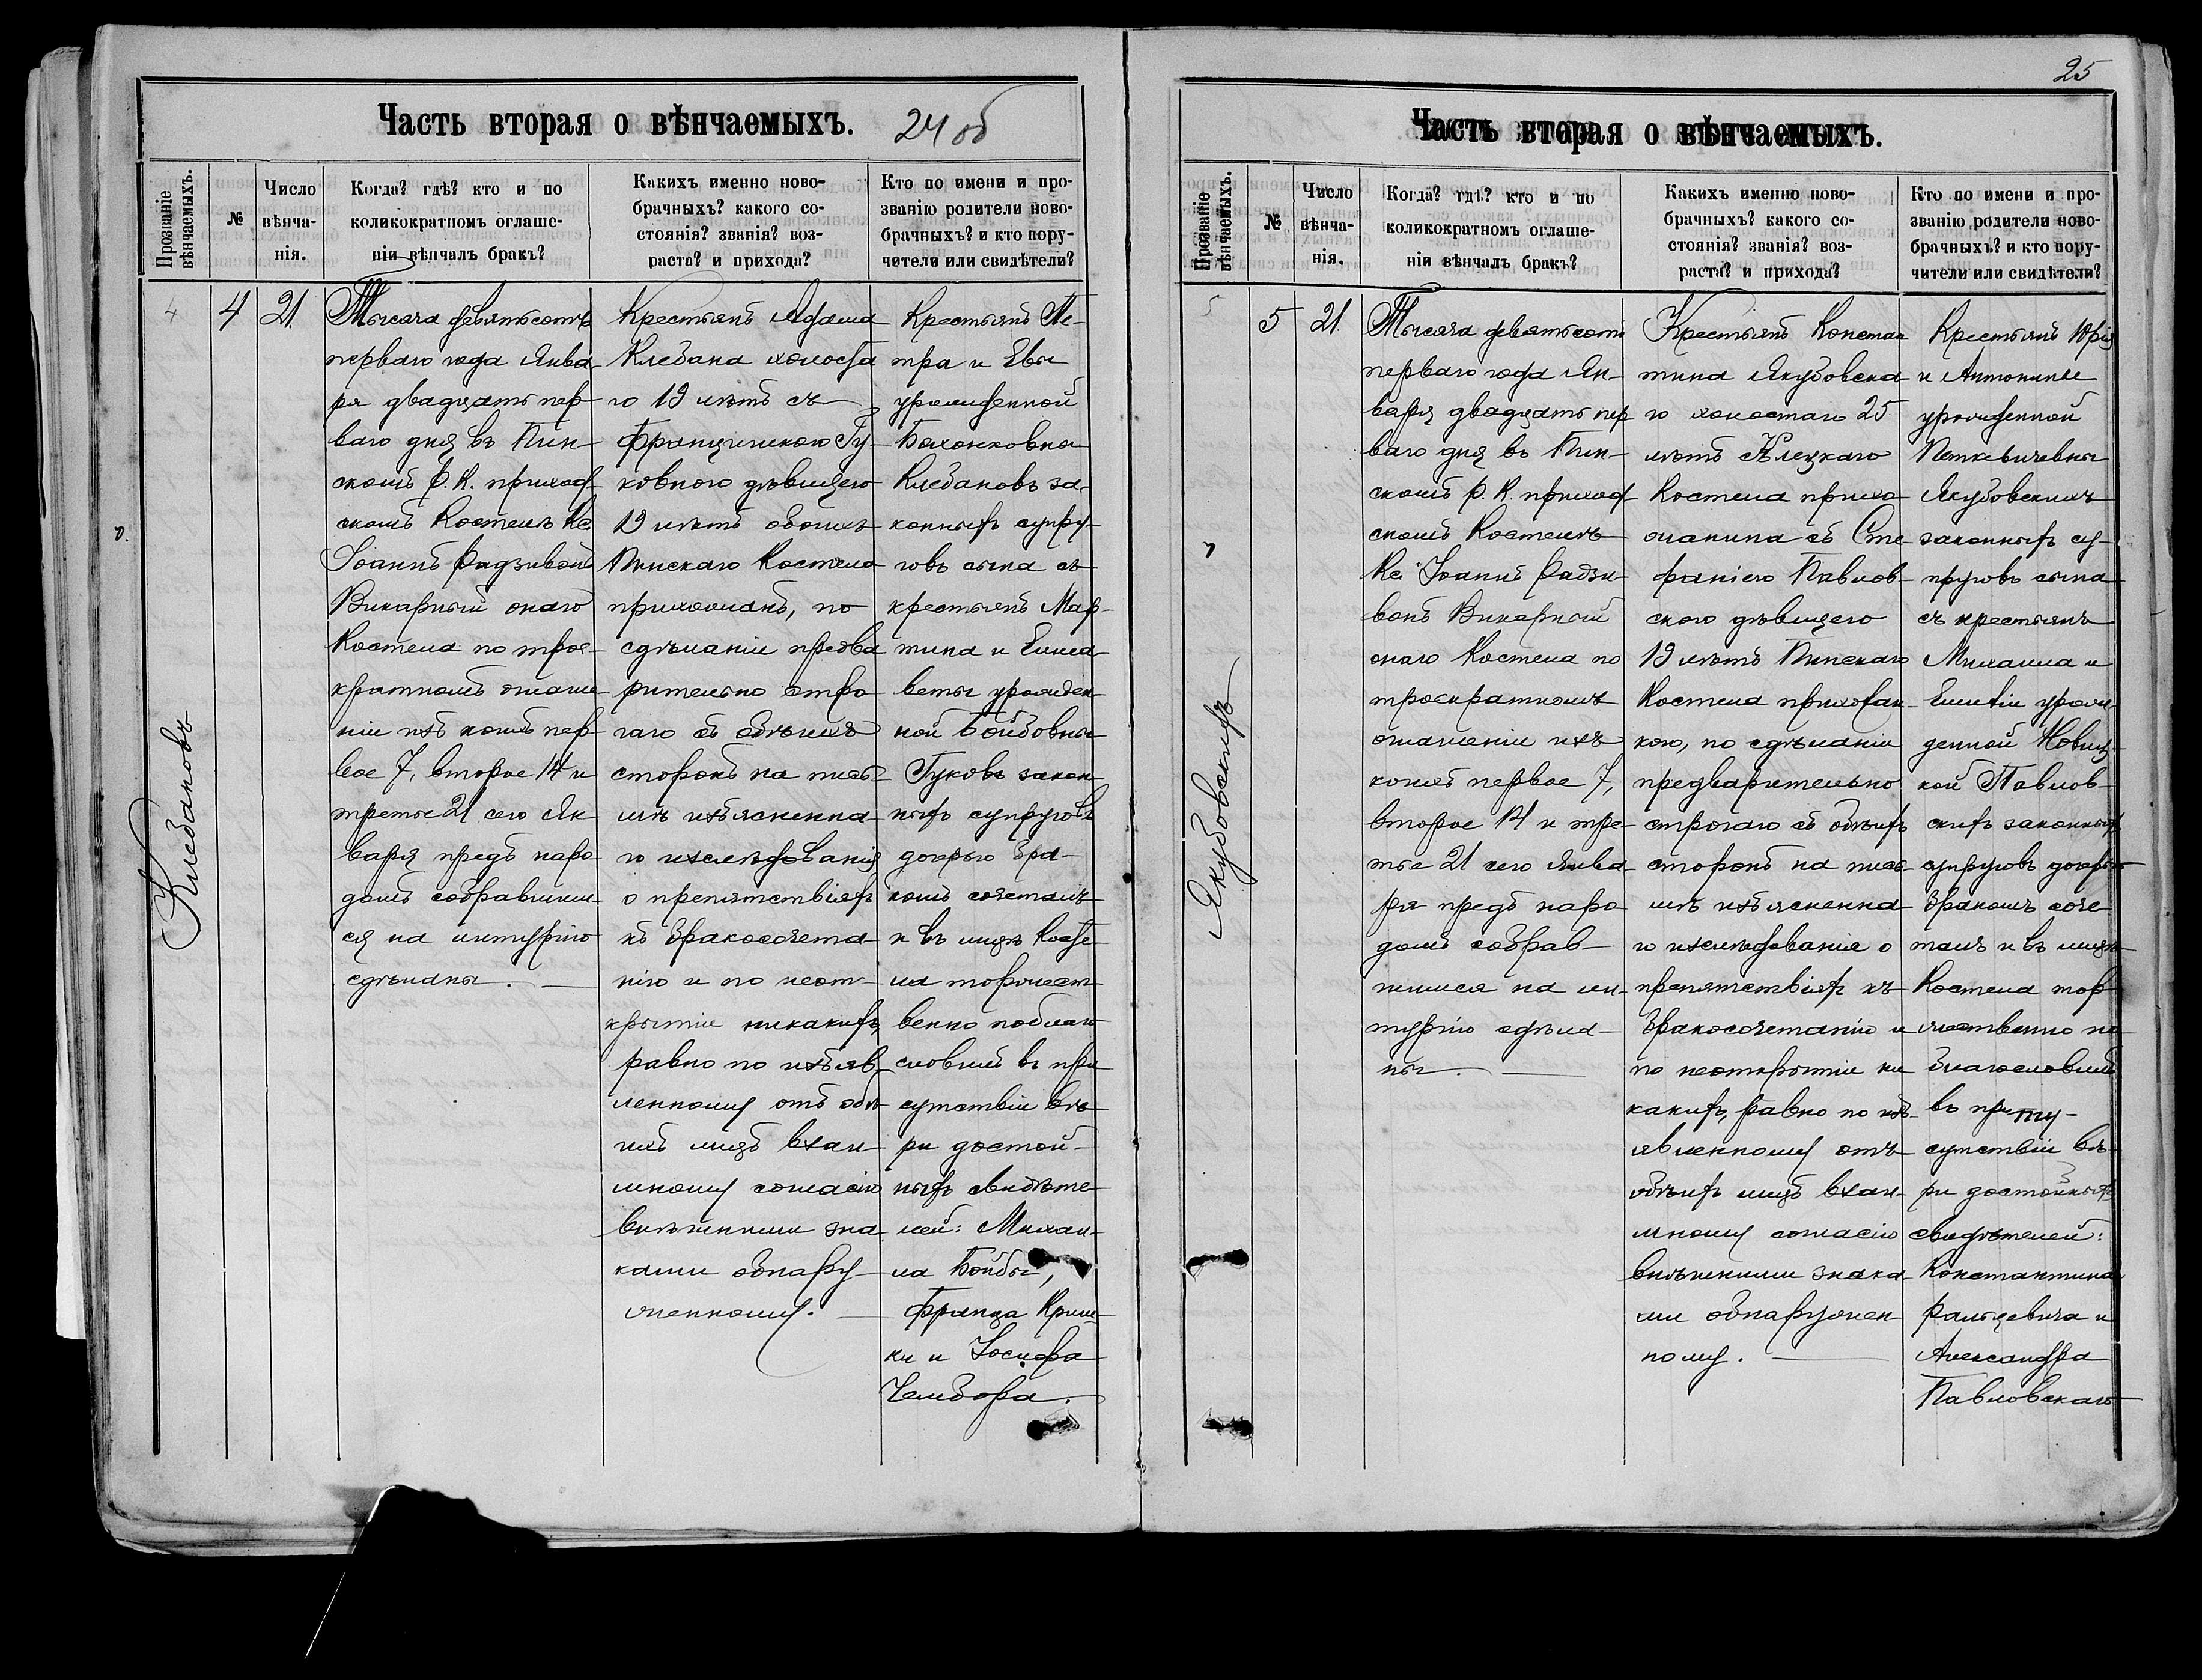 25
Часть вторая о вѣнчаемыхъ.
24 об
Прозваніе вѣнчаемыхъ.
№
Число вѣнча-
нія.
Когда? гдѣ? кто и по
коликократномъ оглаше-
ніи вѣнчалъ бракъ?
Какихъ именно ново-
брачныхъ? какого со-
стоянія? званія? воз-
раста? и прихода?
Кто по имени и про-
званію родители ново-
брачныхъ? и кто пору-
чители или свидѣтели?
4
Клебановъ
4
21.
Тысяча девятьсотъ
перваго года Янва
ря двадцать пер
ваго дня въ Пин-
скомъ Р. К. приход
скомъ Костелѣ Кс.
Іоаннъ Радзивонъ
Викарный онаго
Костела по трое-
кратномъ оглаше
ніи изъ коихъ пер-
вое 7, второе 14 и
третье 21 сего Ян
варя предъ наро
домъ собравшим-
ся на литургію
сдѣланы.
Крестьянъ Адама
Клебана холоста
го 19 лѣтъ съ
Францишкою Гу-
ковною дѣвицею
19 лѣтъ обоихъ
Пинскаго Костела
прихожанъ, по
сдѣланіи предва
рительно стро
гаго съ обѣихъ
сторонъ на пись-
мѣ изъясненна
го изслѣдованія
о препятствіяхъ
къ бракосочета
нію и по неот-
крытіи никакихъ,
равно по изъяв-
ленному отъ обѣ
ихъ лицъ взаи
мному согласію
внѣшними зна
ками обнару-
женному.
Крестьянъ Пе-
тра и Евы
урожденной
Бахонковны
Клебановъ за-
конныхъ супру-
говъ сына съ
крестьянъ Мар-
тина и Елиса-
веты урожден-
ной Бойбовны
Гуковъ закон
ныхъ супруговъ
дочерью бра-
комъ сочеталъ
и въ лицѣ Косте
ла торжест
венно поблаго
словилъ въ при
сутствіи вѣ-
ры достой-
ныхъ свидѣте
лей: Михаи-
ла Бойбы,
Франца Криш-
ки и Іосифа
Чембора.
Часть вторая о вѣнчаемыхъ.
Прозваніе вѣнчаемыхъ.
№
Число вѣнча-
нія.
Когда? гдѣ? кто и по
коликократномъ оглаше-
ніи вѣнчалъ бракъ?
Какихъ именно ново-
брачныхъ? какого со-
стоянія? званія? воз-
раста? и прихода?
Кто по имени и про-
званію родители ново-
брачныхъ? и кто пору-
чители или свидѣтели?
5
Якубовскихъ
5
21.
Тысяча девятьсотъ
перваго года Ян-
варя двадцать пер
ваго дня въ Пин-
скомъ Р. К. приход
скомъ Костелѣ
Кс. Іоаннъ Радзи-
вонъ Викарный
онаго Костела по
троекратномъ
оглашеніи изъ
коихъ первое 7,
второе 14 и тре-
тье 21 сего Янва
ря предъ наро
домъ собрав-
шимся на ли-
тургію сдѣла-
ны.
Крестьянъ Констан
тина Якубовска
го холостаго 25
лѣтъ Клецкаго
Костела прихо
жанина съ Сте
фаніею Павлов-
скою дѣвицею
19 лѣтъ Пинскаго
Костела прихожан-
кою, по сдѣланіи
предварительно
строгаго съ обѣихъ
сторонъ на пись
мѣ изъясненна
го изслѣдованія о
препятствіяхъ къ
бракосочетанію и
по неоткрытіи ни
какихъ, равно по изъ-
явленному отъ
обѣихъ лицъ взаи-
мному согласію
внѣшними знака
ми обнаружен
ному.
Крестьянъ Юрія
и Антонины
урожденной
Петкевичевны
Якубовскихъ
законныхъ су-
пруговъ сына
съ крестьянъ
Михаила и
Емиліи урож-
денной Новиц-
кой Павлов-
скихъ законныхъ
супруговъ дочерью
бракомъ соче
талъ и въ лицѣ
Костела тор
жественно по
благословилъ
въ при
сутствіи вѣ-
ры достойныхъ
свидѣтелей:
Константина
Ральцевича и
Александра
Павловскаго